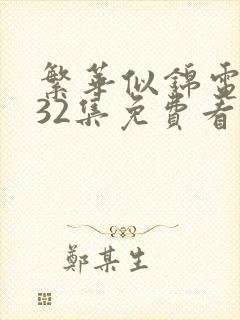 繁華似錦電
32集免費看
鄭某生